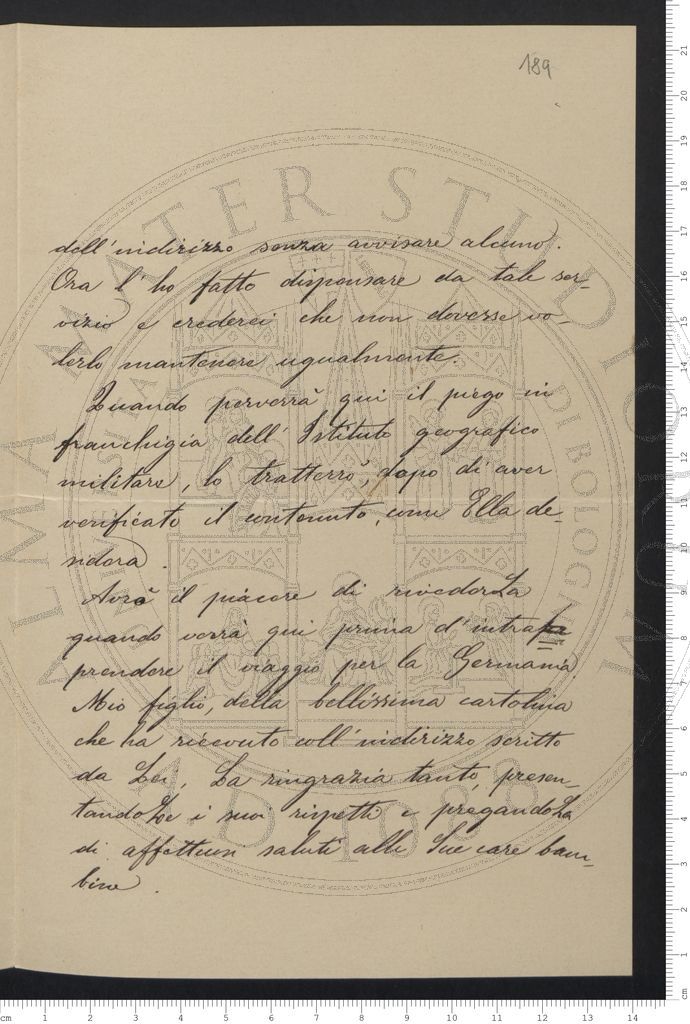 189
dell'indirizzo senza avvisare alcuno.
Ora l'ho fatto dispensare da tale ser-
vizio e crederei che non dovesse vo-
lerlo mantenere ugualmente.
Quando perverrà qui il piego in
franchigia dell'Istituto geografico
militare, lo tratterrò, dopo di aver
verificato il contenuto, come Ella de-
sidera.
Avrò il piacere di rivederLa
quando verrà qui prima d'intra
prendere il viaggio per la Germania.
Mio figlio, della bellissima cartolina
che ha ricevuto coll'indirizzo scritto
da Lei, La ringrazia tanto, presen-
tandoLe i suoi rispetti e pregandoLa
di affettuosi saluti alle Sue care bam-
bine.
ALMA MATER STUDIORUM
A.D. 1088